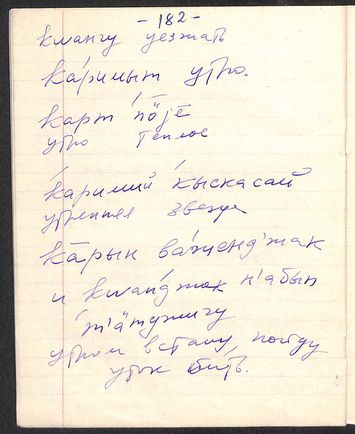 - 182 -
квангу уезжать
ка́римыт утро.
карт по̄jе̄
утро теплое
ка́римий кыскасай
утренняя звезда
ка̄рын ва́женд'жак
и квайд'жак н'абын
т'а́тджигу
утром встану, пойду
уток бить.